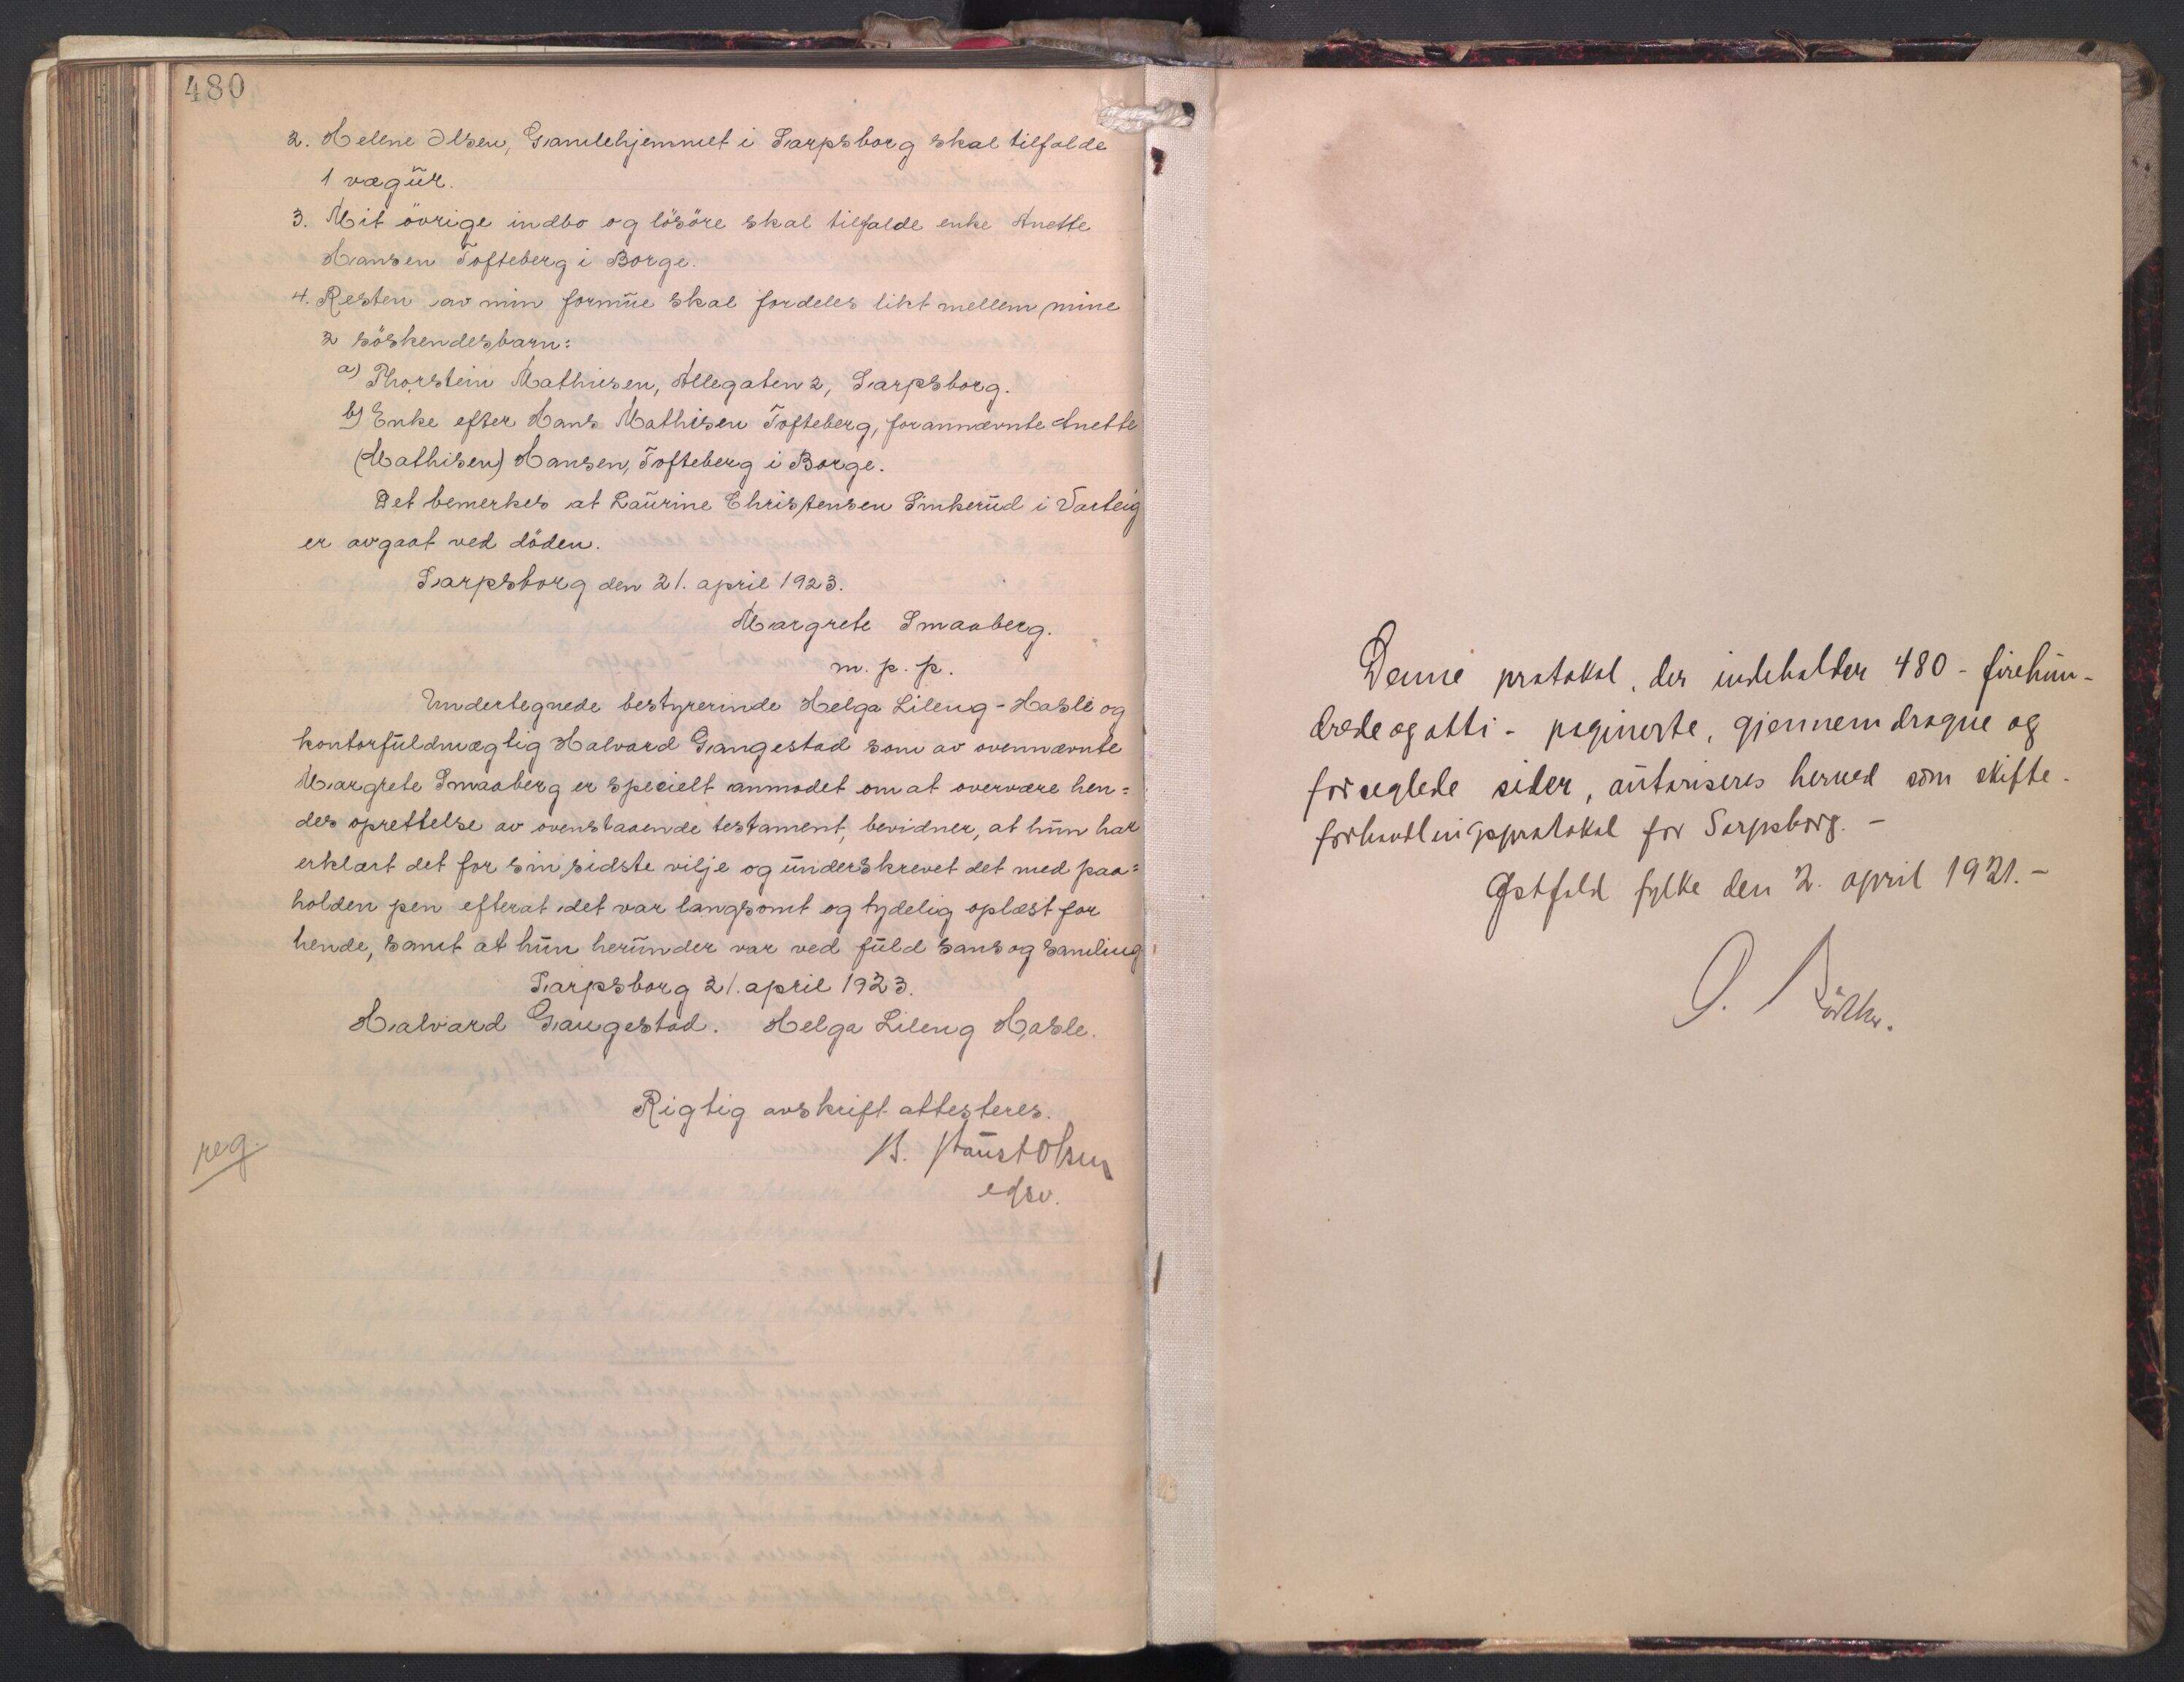 480
2. Helene Olsen, Gamlehjemmet i Sarpsborg skal tilfalde
1 vægur.
3. Mit övrige indbo og lösöre skal tilfalde enke Anette
Hansen Tofteberg i Borge.
4. Resten av min formue skal fordeles likt mellem mine
2 söskendesbarn:
a) Thorstein Mathisen, Allegaten 2, Sarpsborg.
b) Enke efter Hans Mathisen Tofteberg, forannævnte Anette
(Mathisen) Hansen, Tofteberg i Borge.
Det bemerkes at Laurine Christensen Smikerud i Varteig
er avgaat ved döden.
Sarpsborg den 21. april 1923.
Margrete Smaaberg.
m. p. p.
Undertegnede bestyrerinde Helga Lileng-Hasle og
kontorfuldmægtig Halvard Gangestad som av ovennævnte
Margrete Smaaberg er specielt anmodet om at overvære hen=
des oprettelse av ovenstaaende testament, bevidner, at hun har
erklært det for sin sidste vilje og underskrevet det med paa=
holden pen efterat det var langsomt og tydelig oplæst for
hende, samt at hun herunder var ved fuld sans og samling
Sarpsborg 21. april 1923.
Halvard Gangestad. Helga Lileng Hasle.
Rigtig avskrift attesteres.
reg.
Olsen
Denne protokol, der indeholder 480 - firehun-
drede og otti - paginerte, gjennemdragne og
forseglede sider, autoriseres herved som skifte-
forhandlingsprotokol for Sarpsborg. -
Østfold fylke den 2. april 1921. -
O.